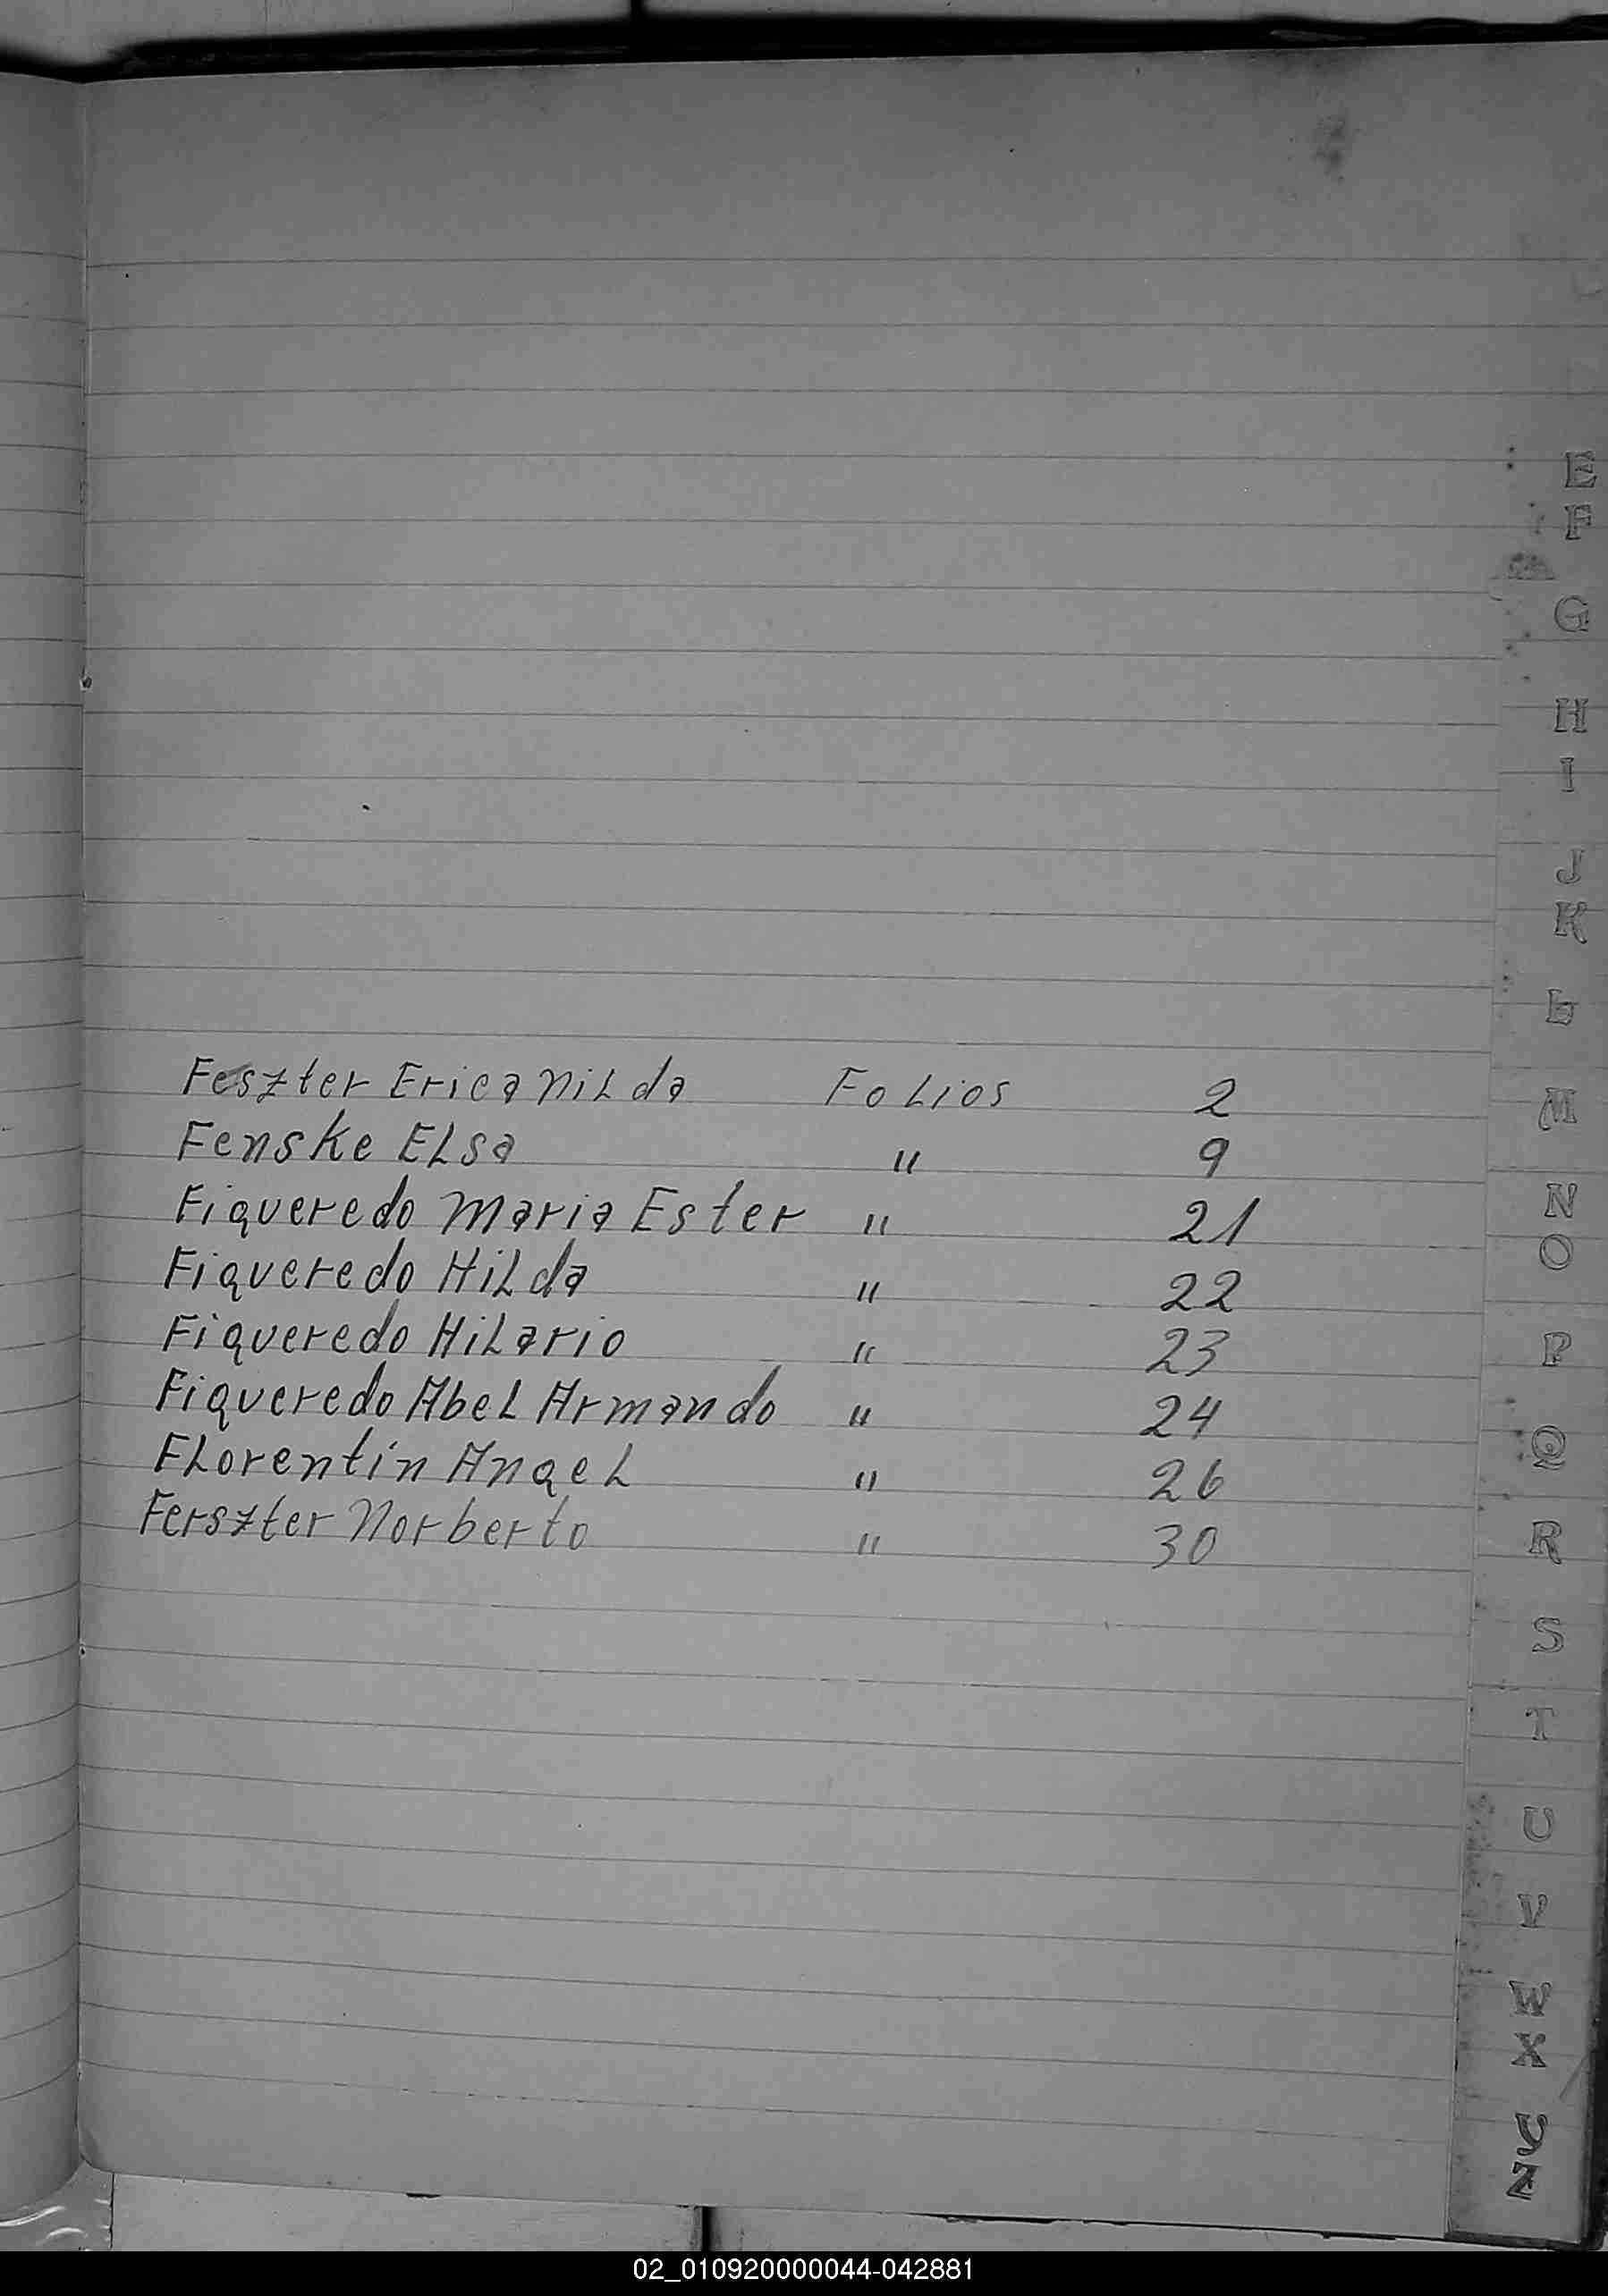 Feszter Erica Nilda Folios 2
Fenske Elsa " 9
Figueredo Maria Ester " 21
Figueredo Hilda " 22
Figueredo Hilario " 23
Figueredo Abel Armando " 24
Florentín Angel " 26
Ferszter Norberto " 30
E
F
G
H
I
J
K
L
M
N
O
P
Q
R
S
T
U
V
W
X
Y
Z
02_010920000044-042881